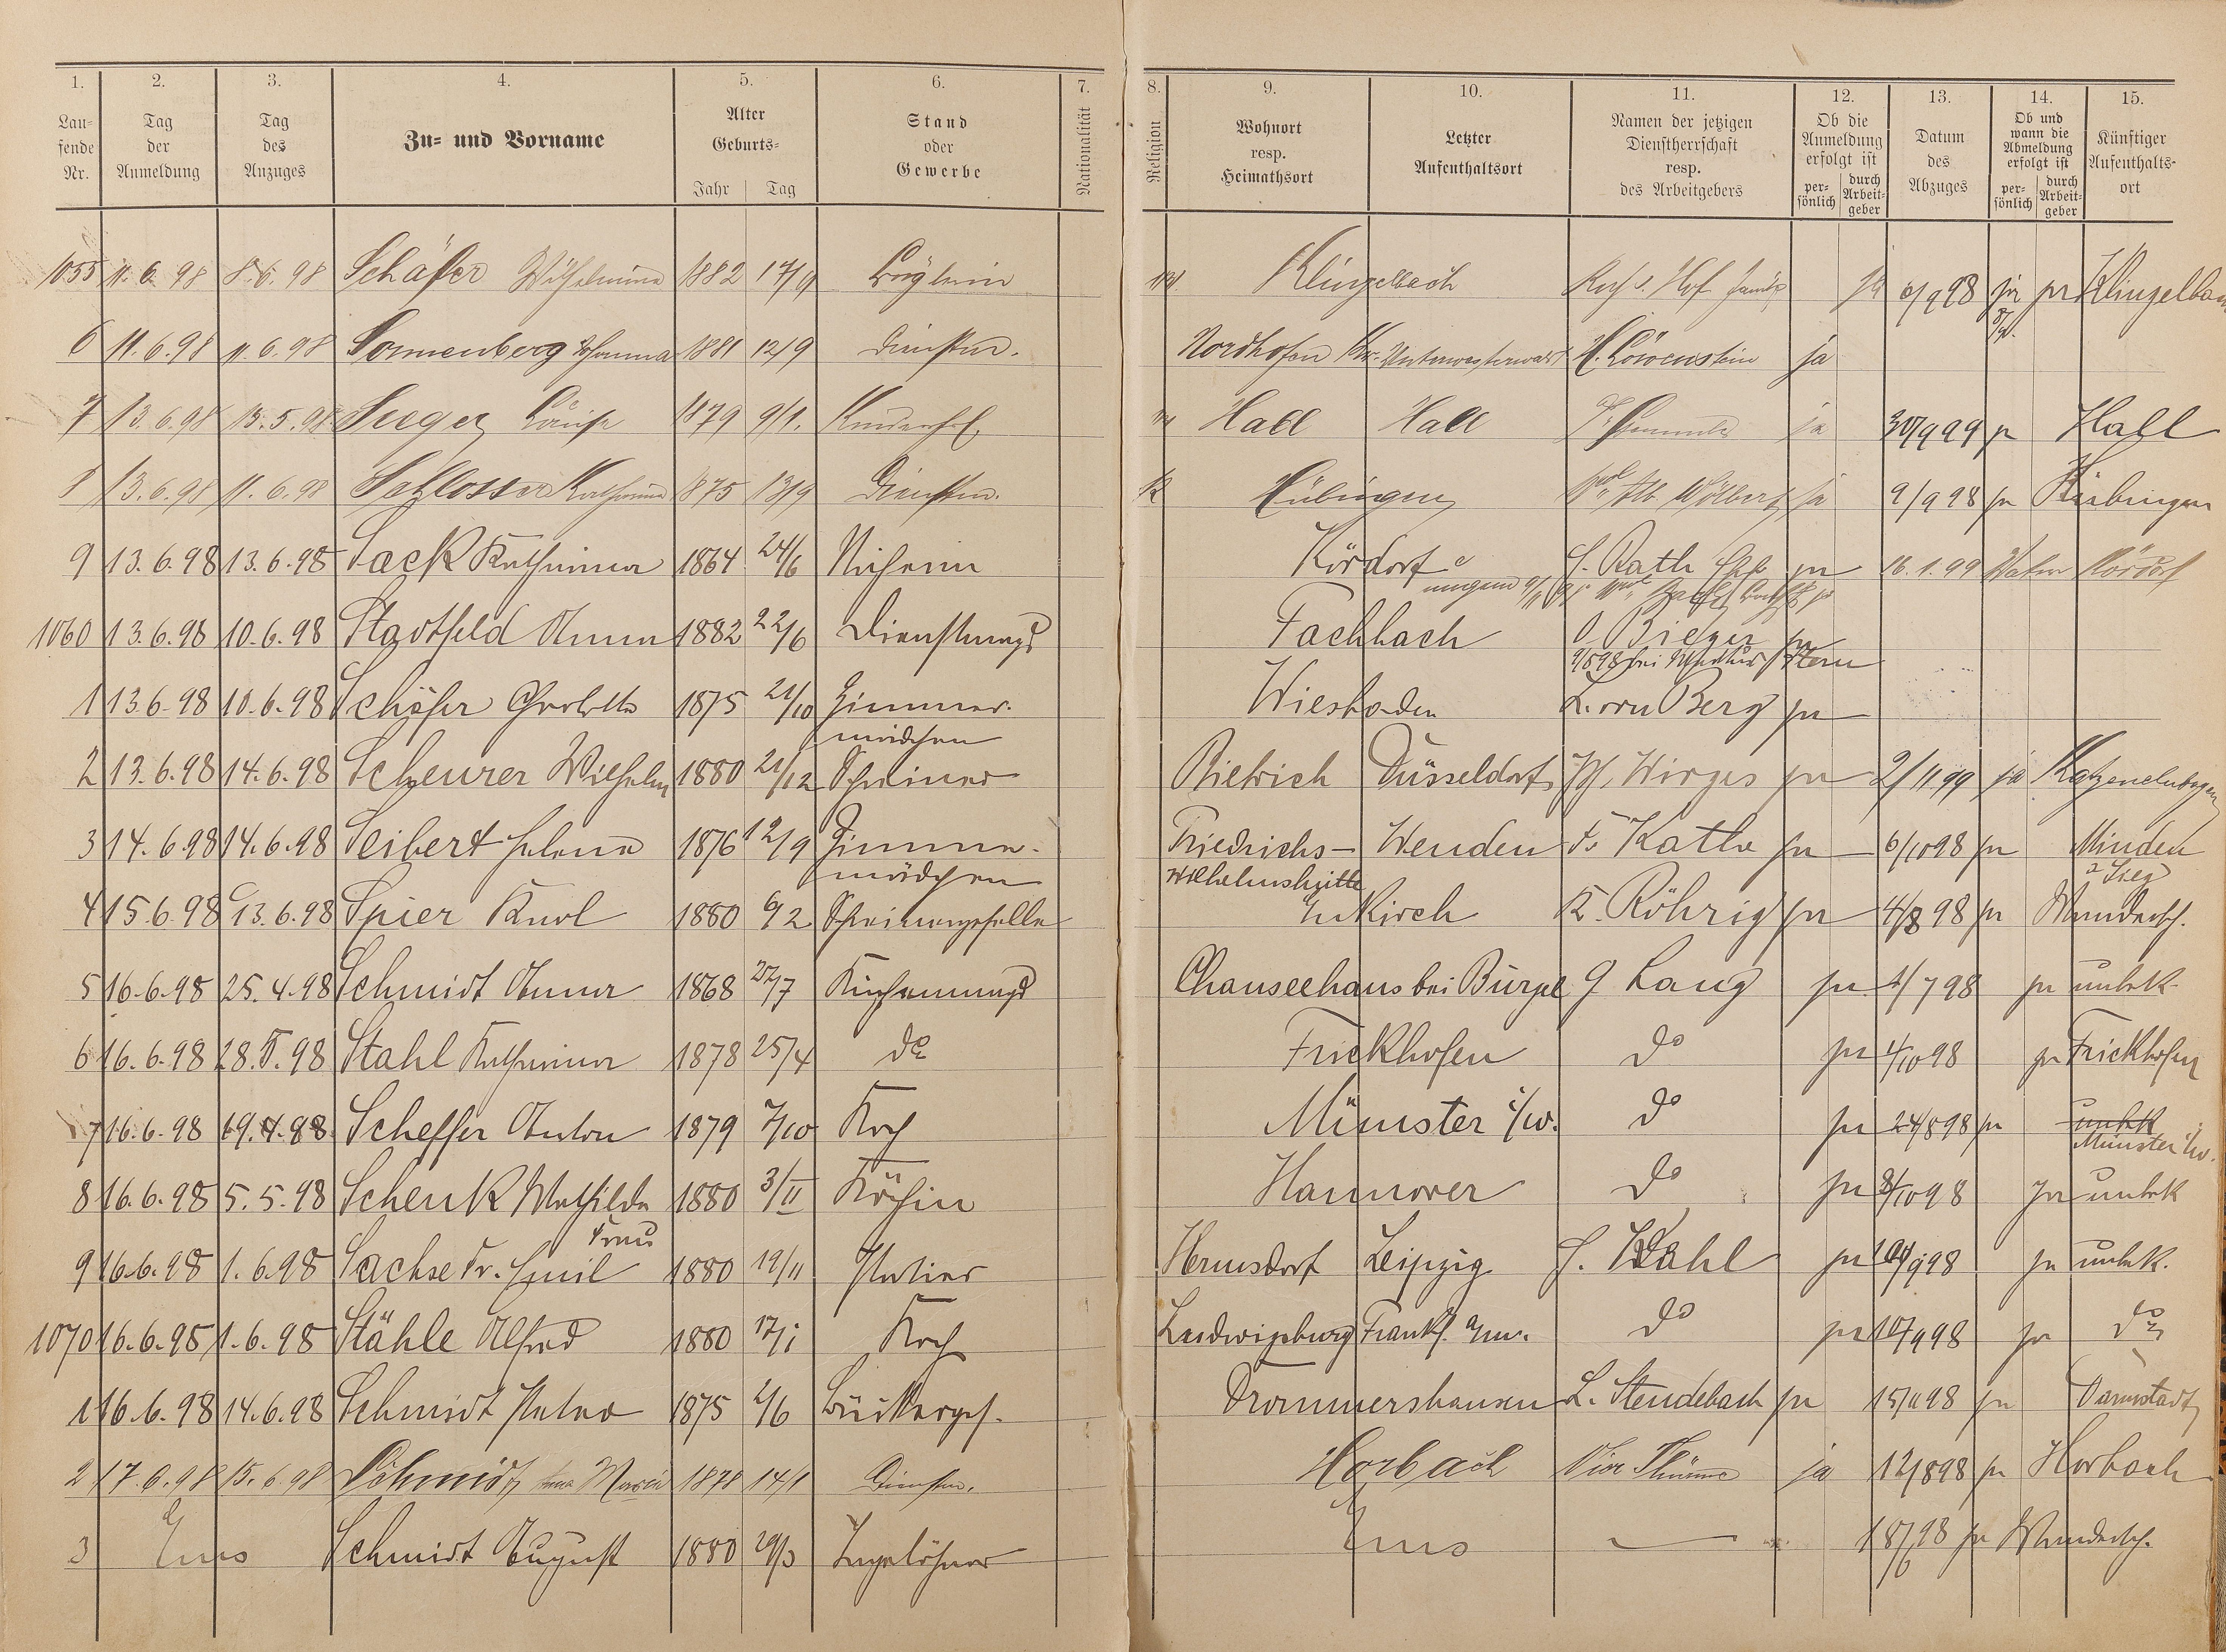 1. 2. 3. 4. 5. 6. 7. 8. 9. 10. 11. 12. 13. 14. 15.
Lau-
fende
Nr.
Tag
der
Anmeldung
Tag
des
Anzuges
Zu- und Vorname
Alter
Geburts-
Jahr Tag
Stand
oder
Gewerbe
Nationalität
Religion
Wohnort
resp.
Heimathsort
Letzter
Aufenthaltsort
Namen der jetzigen
Dienstherrschaft
resp.
des Arbeitgebers
Ob die
Anmeldung
erfolgt ist
per-
sönlich
durch
Arbeit-
geber
Datum
des
Abzuges
Ob und
wann die
Abmeldung
erfolgt ist
per-
sönlich
durch
Arbeit-
geber
Künftiger
Aufenthalts-
ort
1055 11. 6. 98 8. 6. 98 Schäfer Wilhelmine 1882 17/9 Büglerin Klingelbach ja 6/9 98 ja Klingelbach
6 11. 6. 98 11. 6. 98 Sonnenberg Johanna 1881 12/9 Dienstm. Nordhofen Kr. Unterwesterwald H. Löwenstein ja
7 13. 6. 98 13. 5. 98 Seeger Luise 1879 9/1. Kinderfrl. Hall Hall ja 30/9 99 ja Hall
8 13. 6. 98 11. 6. 98 Schlosser Katharina 1875 13/9 Dienstm. K Hübingen Alb. Wölbert ja 9/9 98 ja Hübingen
9 13. 6. 98 13. 6. 98 Sack Katharina 1864 24/6 Näherin Kördorf Rath ja 16. 1. 99 Kördorf
1060 13. 6. 98 10. 6. 98 Stadtfeld Anna 1882 22/6 Dienstmagd Fachbach O. Bieger ja
1 13. 6. 98 10. 6. 98 Schäfer Charlotte 1875 21/10 Zimmer- Wiesbaden L. von Berg ja
mädchen
2 13. 6. 98 14. 6. 98 Scheurer Wilhelm 1880 21/12 Schreiner Biebrich Düsseldorf Wirges ja 2/11 99 ja Katzenelnbogen
3 14. 6. 98 14. 6. 98 Seibert Helena 1876 12/9 Zimmer- Friedrichs- Wenden Fr Kathe ja 6/10 98 ja Minden
mädchen Wilhelmshütte a Sieg
4 15. 6. 98 13. 6. 98 Spier Karl 1880 9/2 Schreinergeselle Enkirch K. Röhrig ja 4/8 98 ja Wandersch.
5 16. 6. 98 25. 4. 98 Schmidt Anna 1868 27/7 Küchenmagd Chauseehaus bei Bürgel G Lang ja 1/7 98 ja unbek.
6 16. 6. 98 28. 5. 98 Stahl Katharina 1878 25/4 do Frickhofen do ja 1/10 98 ja Frickhofen
7 16. 6. 98 19. 4. 98 Scheffer Anton 1879 7/10 Koch Münster i/W. do ja 24/8 98 ja unbk
Münster i/W.
8 16. 6. 98 5. 5. 98 Schenk Mathilde 1880 3/II Köchin Hannover do ja 8/10 98 ja unbek
Frau
9 16. 6. 98 1. 6. 98 Sachse Fr. Emil 1880 19/11 Hermsdorf Leipzig Wahl ja 9 98 ja unbek.
1070 16. 6. 98 1. 6. 98 Stähle Alfred 1880 17/1 Koch Ludwigsburg Frankf. a/m. do ja 10/9 98 ja do
1 16. 6. 98 14. 6. 98 Schmidt Peter 1875 2/6 Bäckerges. Drommershausen L. Stendebach ja 15/11 98 ja Darmstadt
2 17. 6. 98 15. 6. 98 Schmidt Maria 1878 14/1 Dienstm. Horbach Thürme ja 12/8 98 ja Horbach
3 Ems Schmidt August 1880 29/3 Tagelöhner Ems — 18/6 98 ja Wandersch.